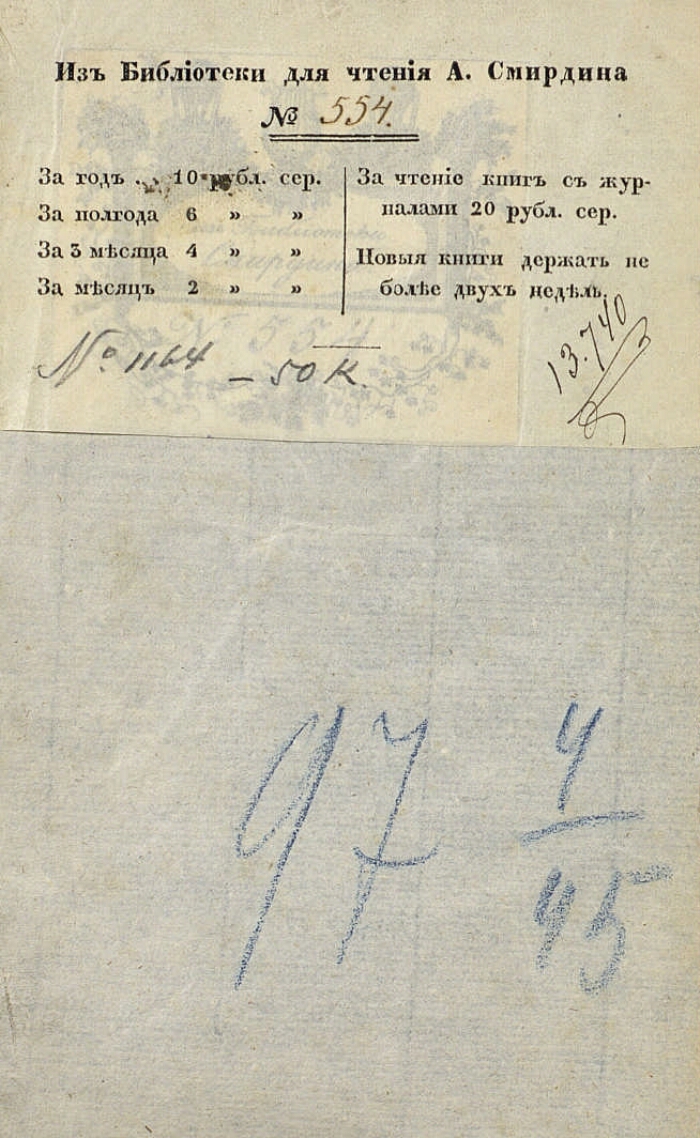 Изъ Библіотеки для чтенія А. Смирдина
№ 554.
За годъ . . 10 рубл. сер.
За полгода 6 » »
За 3 мѣсяца 4 » »
За мѣсяцъ 2 » »
За чтеніе книгъ съ жур-
налами 20 рубл. сер.
Новыя книги держать не
болѣе двухъ недѣль.
№ 554
№ 1164 – 50 К.
13.740
97 4
45